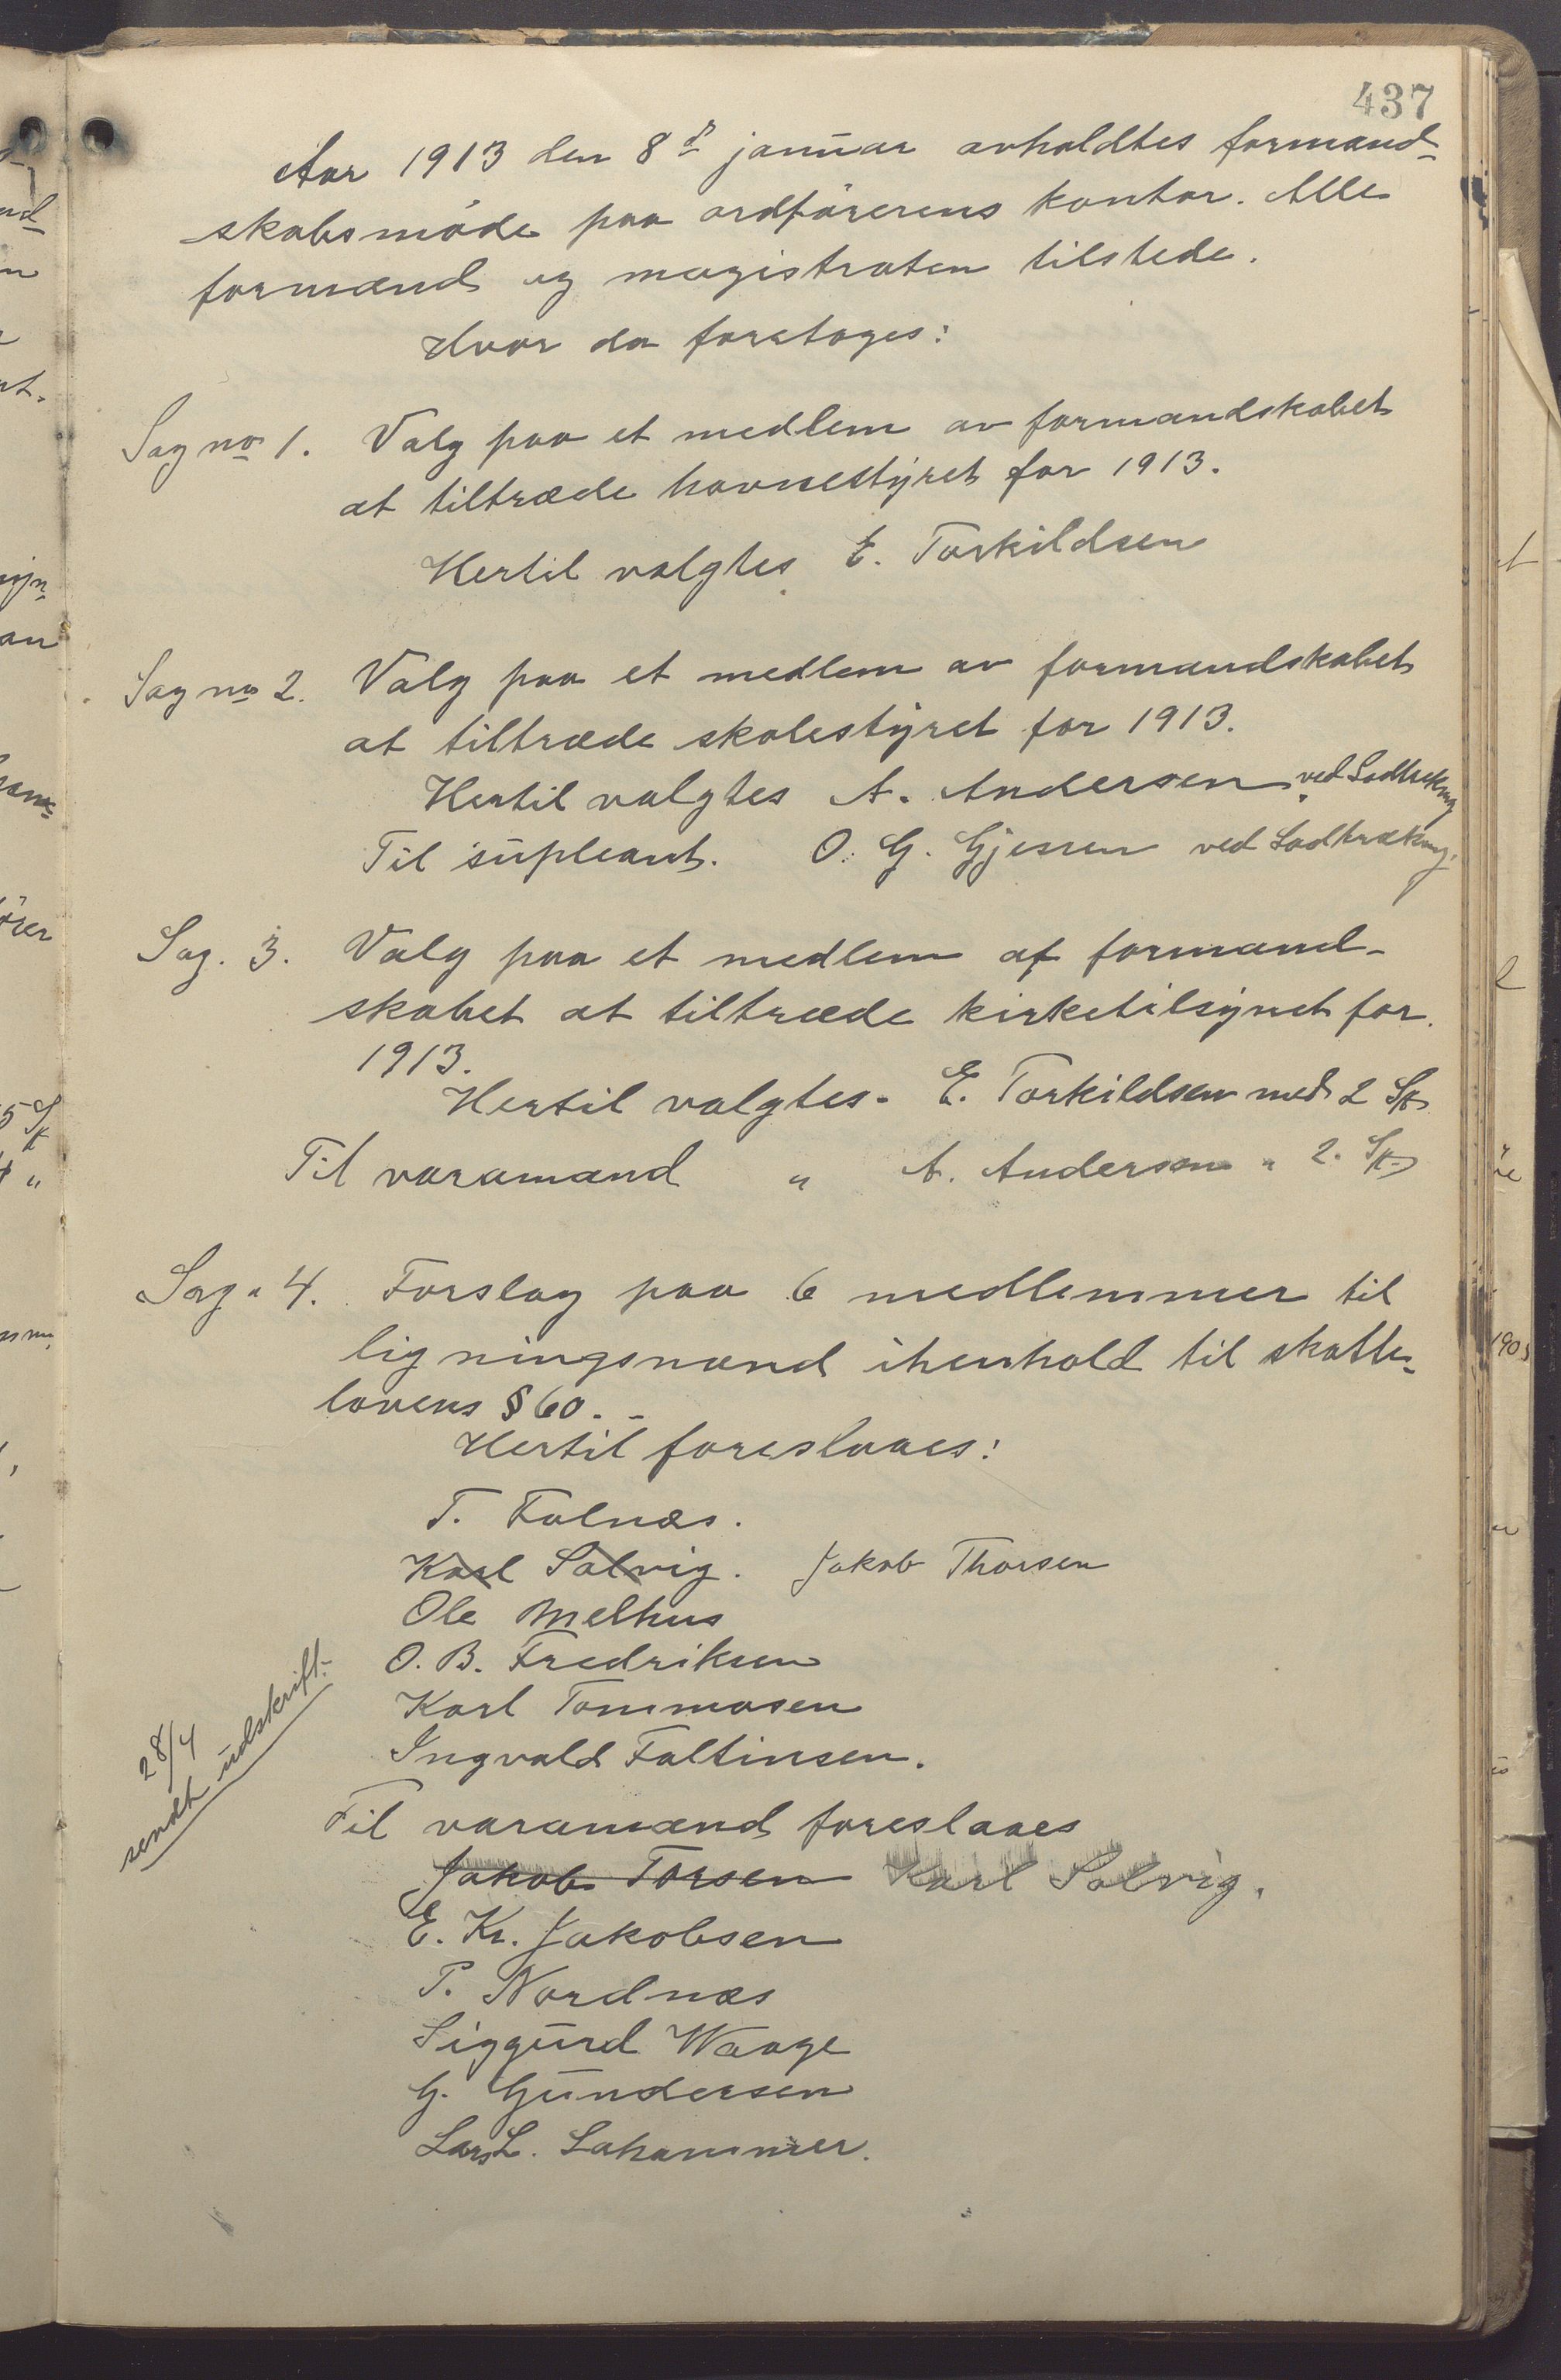 437
Aar 1913 den 8de januar avholdtes formand-
skabsmöde paa ordförerens kontor. Alle
formænd og magistraten tilstede.
Hvor da foretoges:
Sag no 1. Valg paa et medlem av formandskabet
at tiltræde havnestyret for 1913.
Hertil valgtes E. Torkildsen
Sag no 2. Valg paa et medlem av formandskabet
at tiltræde skolestyret for 1913.
Hertil valgtes A. Andersen ved Lodtrekng
Til supleant. O. G. Gjessen ved Lodtrækng.
Sag. 3. Valg paa et medlem af formand-
skabet at tiltræde kirketilsynet for
1913.
Hertil valgtes. E. Torkildsen med 2 St.
Til varamand " A. Andersen " 2. St.
Sag " 4. Forslag paa 6 medlemmer til
ligningsnævnd ihenhold til skatte-
lovens § 60. -
Hertil foreslaaes:
T. Falnæs.
Karl Salvig. Jakob Thorsen
Ole Melhus
O. B. Fredriksen
Karl Tommasen
Ingvald Faltinsen.
28/4
sendt udskrift.
Til varamænd foreslaaes
Jakob Torsen Karl Salvig.
E. Kr. Jakobsen
P. Nordnæs
Siggurd Waage
G. Gundersen
Lars L. Lahammer.